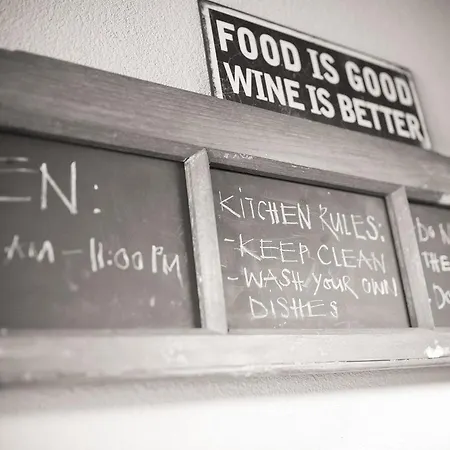 FOOD IS GOOD
WINE IS BETTER
EN:
AM - 11:00 PM
KITCHEN RULES:
- KEEP CLEAN
- WASH YOUR OWN
DISHES
DO
THE
- DO